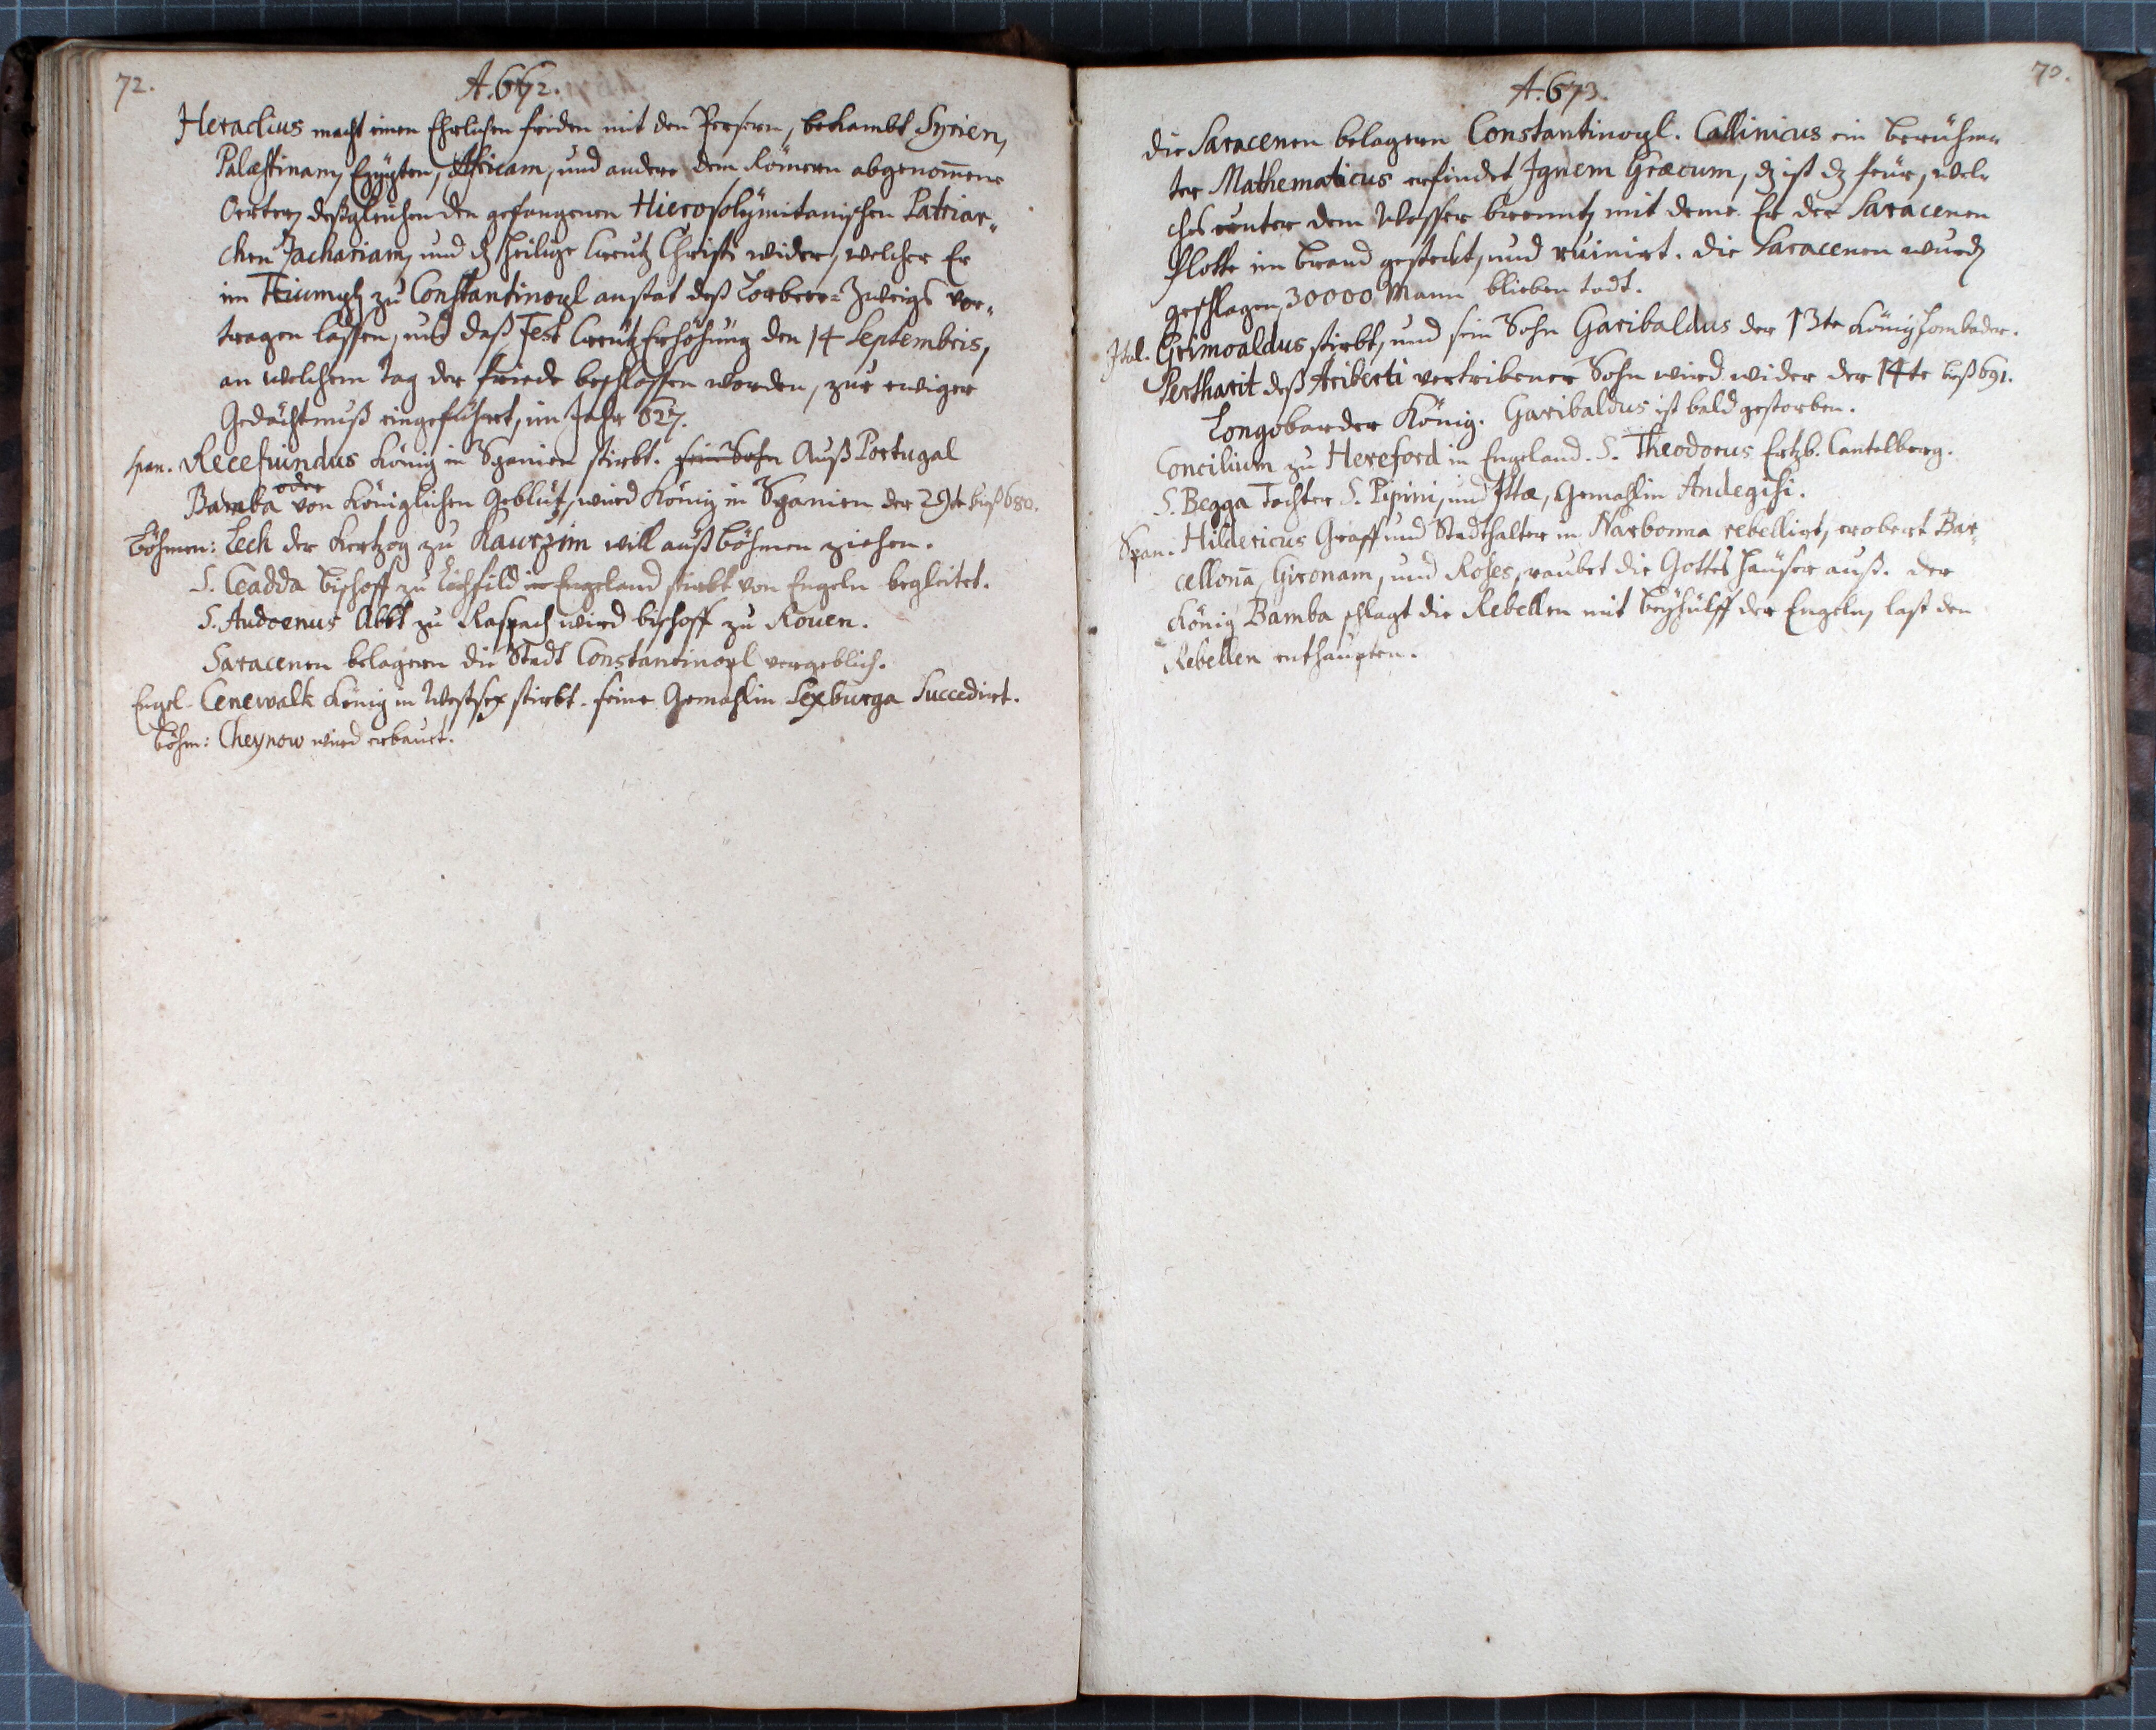 72.
A. 672.
Heraclius macht einen Ehrlichen friden mit den Persern, bekambt Syrien,
Palæstinam, Egypten, Africam, und andere dem Römern abgenom̄ene
Oerter, deßgleichen den gefangenen Hierosolÿmitanischen Patriar-
chen Zachariam, und dz heilige Creutz Christi wider, welches Er
im Triumph zu Constantinopl anstat deß Lorbeer-Zweigs vor-
tragen lassen, und daß Fest Creutz Erhöhung den 14 Septembris,
an welchem tag der friede beschlossen worden, zur ewiger
Gedächtnuß eingeführt, im Jahr 627.
Span. Recesuindus König in Spanien stirbt. sein Sohn Auß Portugal
oder
Bamba von Königlichen Geblüt, wird König in Spanien der 29te biß 680.
Böhmen: Lech der Hertzog zu Kaurzim will auß böhmen ziehen.
S. Ceadda Bischoff zu Lichfild in Engeland stirbt von Engeln begleitet.
S. Audoenus Abbt zu Raspach wird bischoff zu Rouen.
Saracenen belagern die Stadt Constantinopl vergeblich.
Engel. Cenewalk König in Westsex stirbt. seine Gemahlin Sexburga Succedirt.
böhm: Cheynow wird erbaut.
73.
A. 673.
die Saracenen belagern Constantinopl. Callinicus ein berühm-
ter Mathematicus erfindet Ignem Græcum, dz ist dz feür, wel-
ches unter dem Wasser brennt, mit deme Er der Saracenen
flotte im brand gesteckt, und ruinirt. die Saracenen wurdz
geschlagen, 30000 Mann blieben todt.
Ital. Grimoaldus stirbt, und sein Sohn Garibaldus der 13te König Lombader.
Pertharit deß Ariberti vertribener Sohn wird wider der 14te biß 691.
Longobarder König. Garibaldus ist bald gestorben.
Concilium zu Hereford in Engeland. S. Theodorus Ertzb. Cantelberg.
S. Begga Tochter S. Pipini, und Ittæ, Gemahlin Andegisi.
Span. Hildericus Graff und Stadthalter in Narbonna rebellirt, erobert Bar-
cellon̄a, Gironam, und Roses, raubet die Gottes häuser auß. der
König Bamba schlagt die Rebellen mit beÿhülff der Engeln, last den
Rebellen enthaupten.